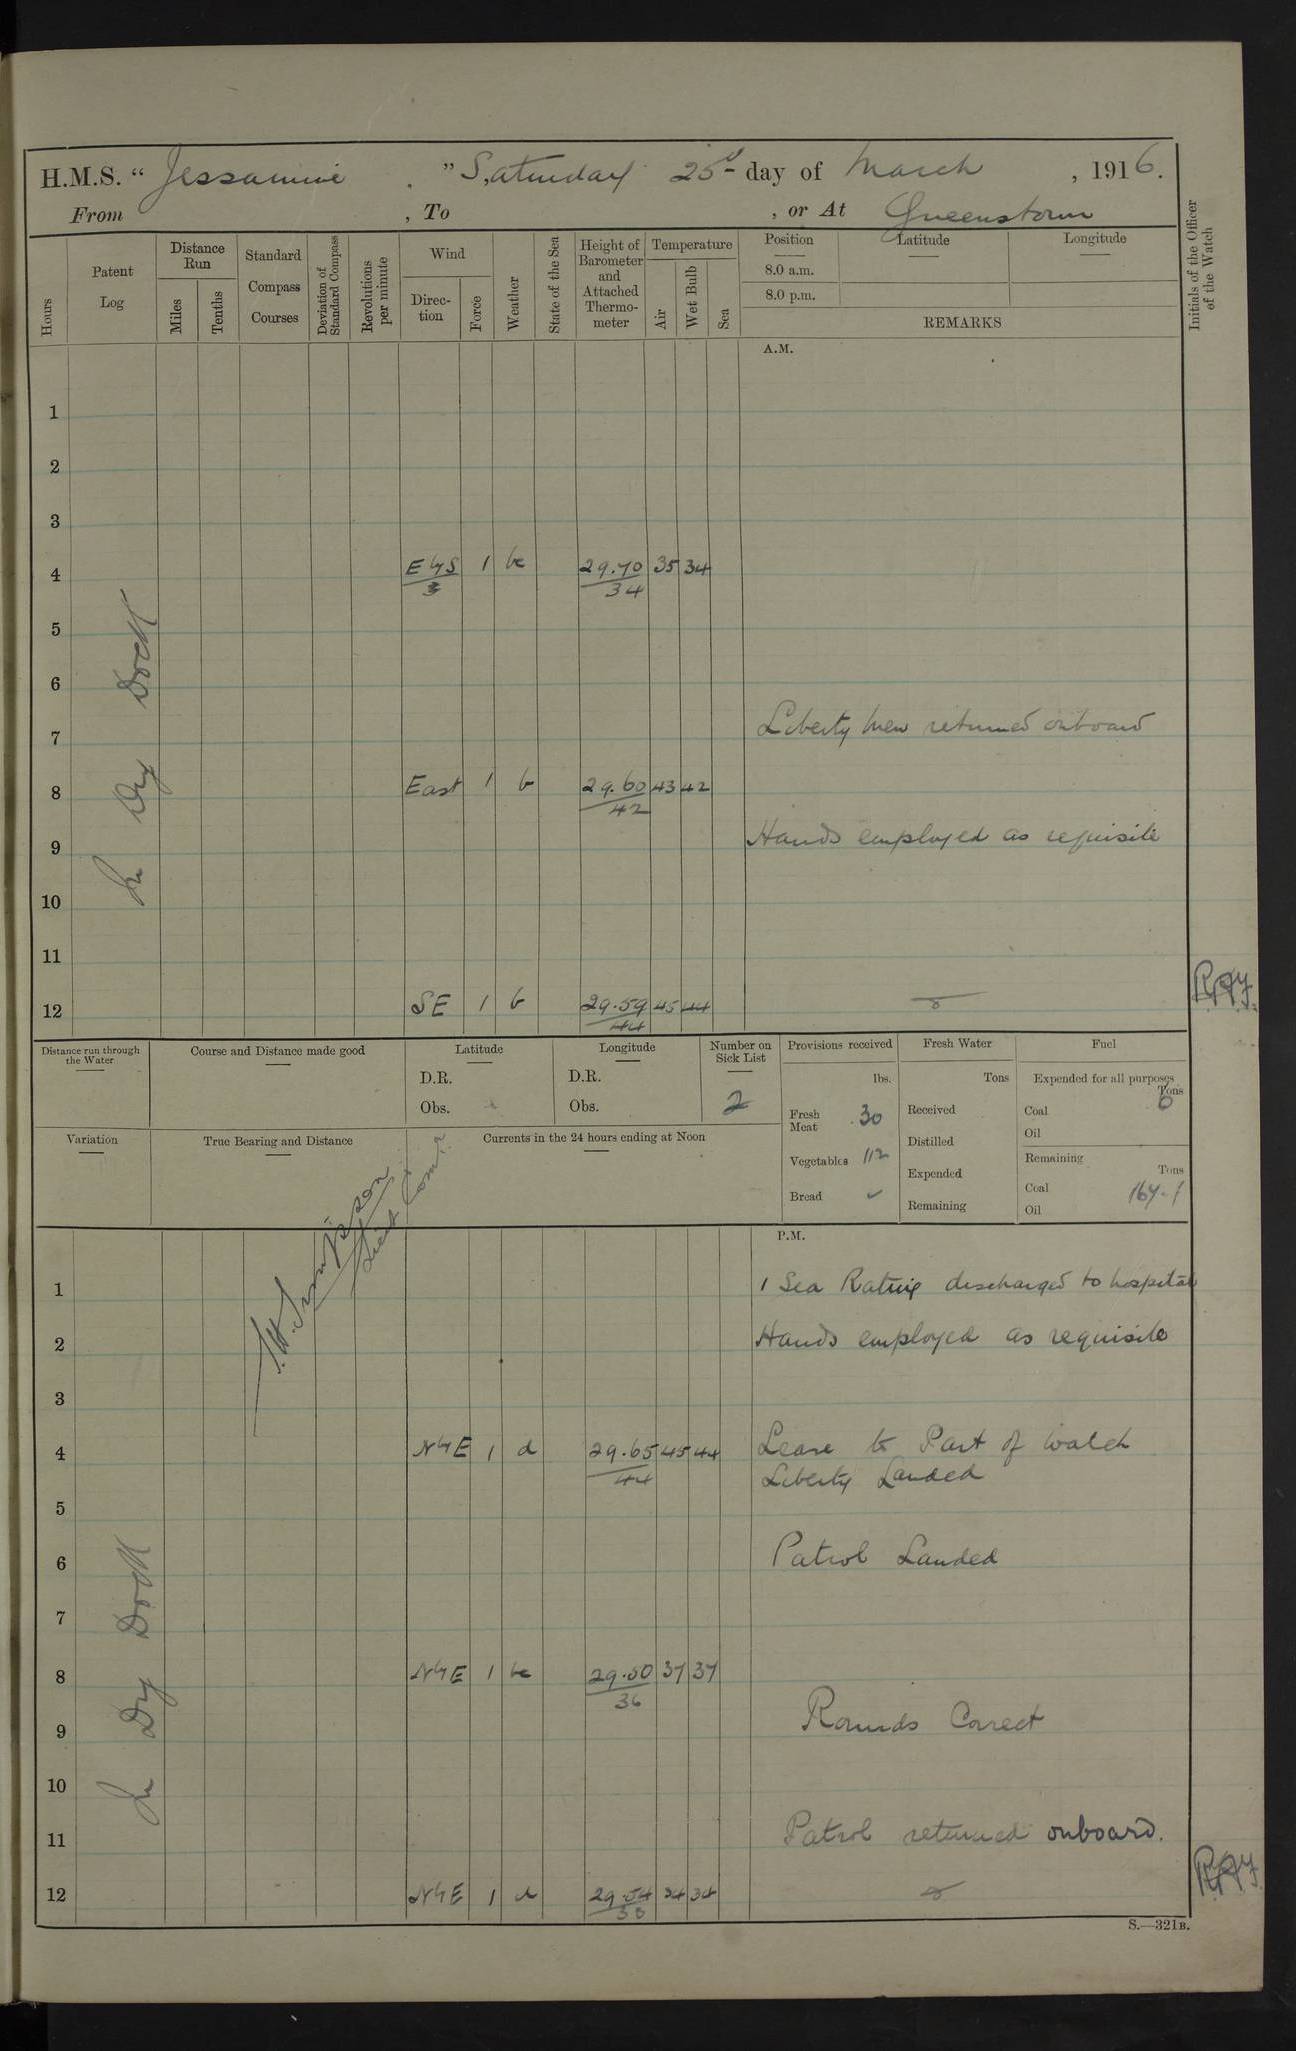 H.M.S. “ Jessamine . ” Saturday 25th day of March , 1916.
From , To , or At Queenstown
Hours
Patent Log
Distance Run
Miles
Tenths
Standard Compass Courses
Deviation of Standard Compass
Revolutions per minute
Wind
Direc- tion
Force
Weather
State of the Sea
Height of Barometer and Attached Thermo- meter
Temperature
Air
Wet Bulb
Sea
Position
Latitude
Longitude
8.0 a.m.
8.0 p.m.
REMARKS
Initials of the Officer of the Watch
A.M.
1
2
3
4 E by S 1 bc 29.70 35 34
3 34
5
6
In Dry Dock
Liberty men returned onboard
7
8 East 1 b 29.60 43 42
42
Hands employed as requisite
9
10
11
12 SE 1 b 29.59 45 44
44
Distance run through the Water
Course and Distance made good
Latitude
D.R.
Obs.
Longitude
D.R.
Obs.
Number on Sick List
2
Provisions received
lbs.
Fresh Meat 30
Vegetables 112
Bread
Fresh Water
Tons
Received
Distilled
Expended
Remaining
Fuel
Expended for all purposes
Tons
Coal 6
Oil
Remaining
Tons
Coal 164.1
Oil
Variation
True Bearing and Distance
Currents in the 24 hours ending at Noon
Simpson
Lieut Comr
P.M.
1 1 Sea Rating discharged to hospital
2 Hands employed as requisite
3
4 N by E 1 d 29.65 45 44 Leave to Part of watch
44 Liberty Landed
5
6 Patrol Landed
7
In Dry Dock
8 N by E 1 bc 29.50 37 37
36
9 Rounds Correct
10
11 Patrol returned onboard.
12 N by E 1 d 29.54 34 34
S.—321B.